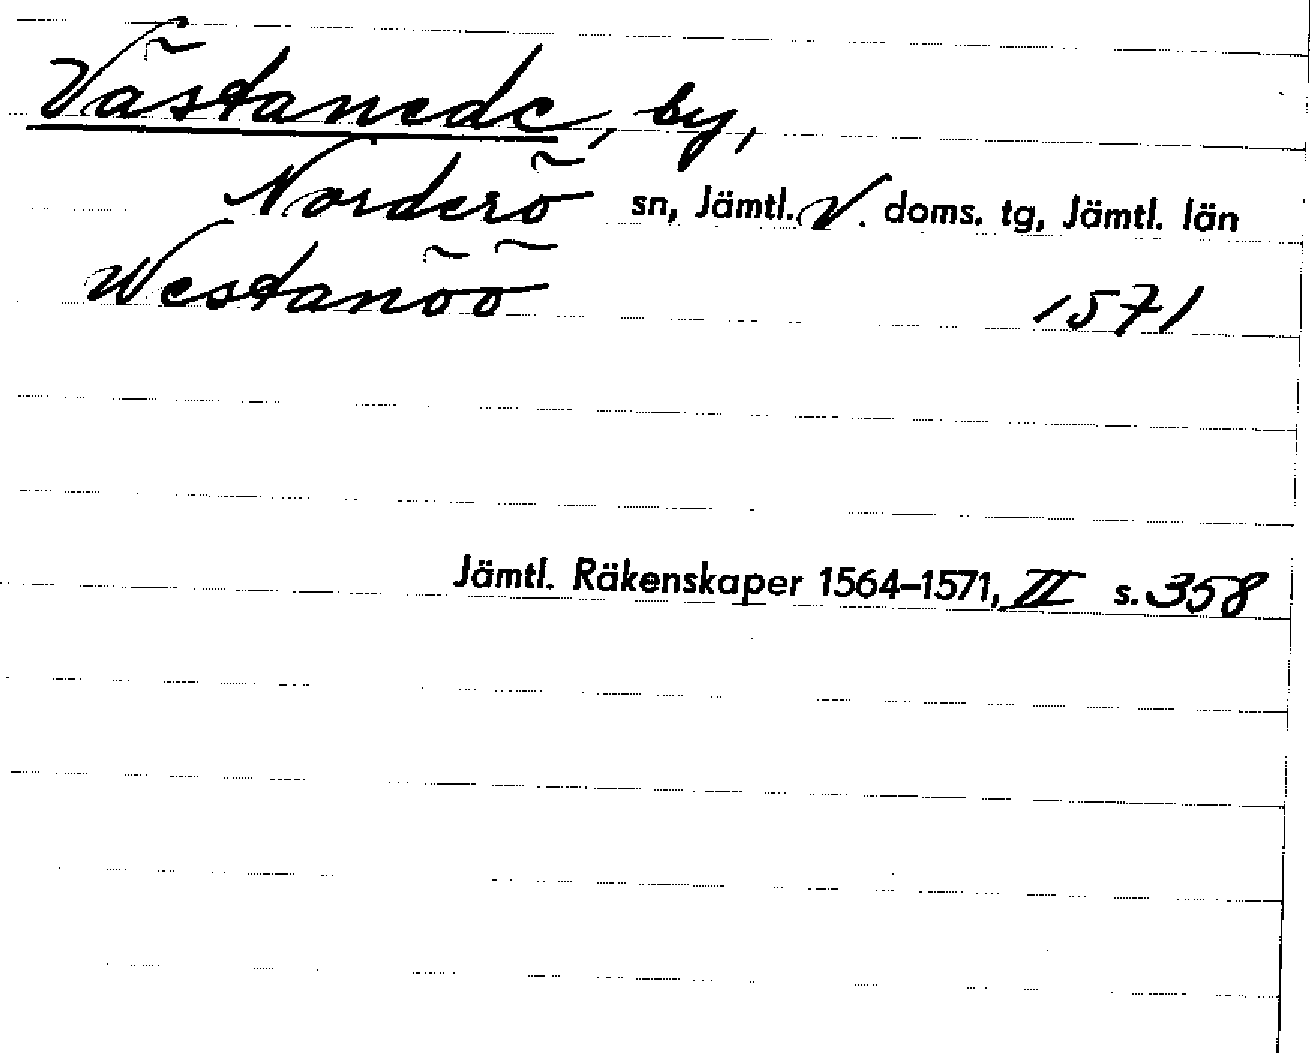 Västanede, by,
Norderö sn, Jämtl. V. doms. tg, Jämtl. län
Westanöö 1571
Jämtl. Räkenskaper 1564–1571, II s. 358